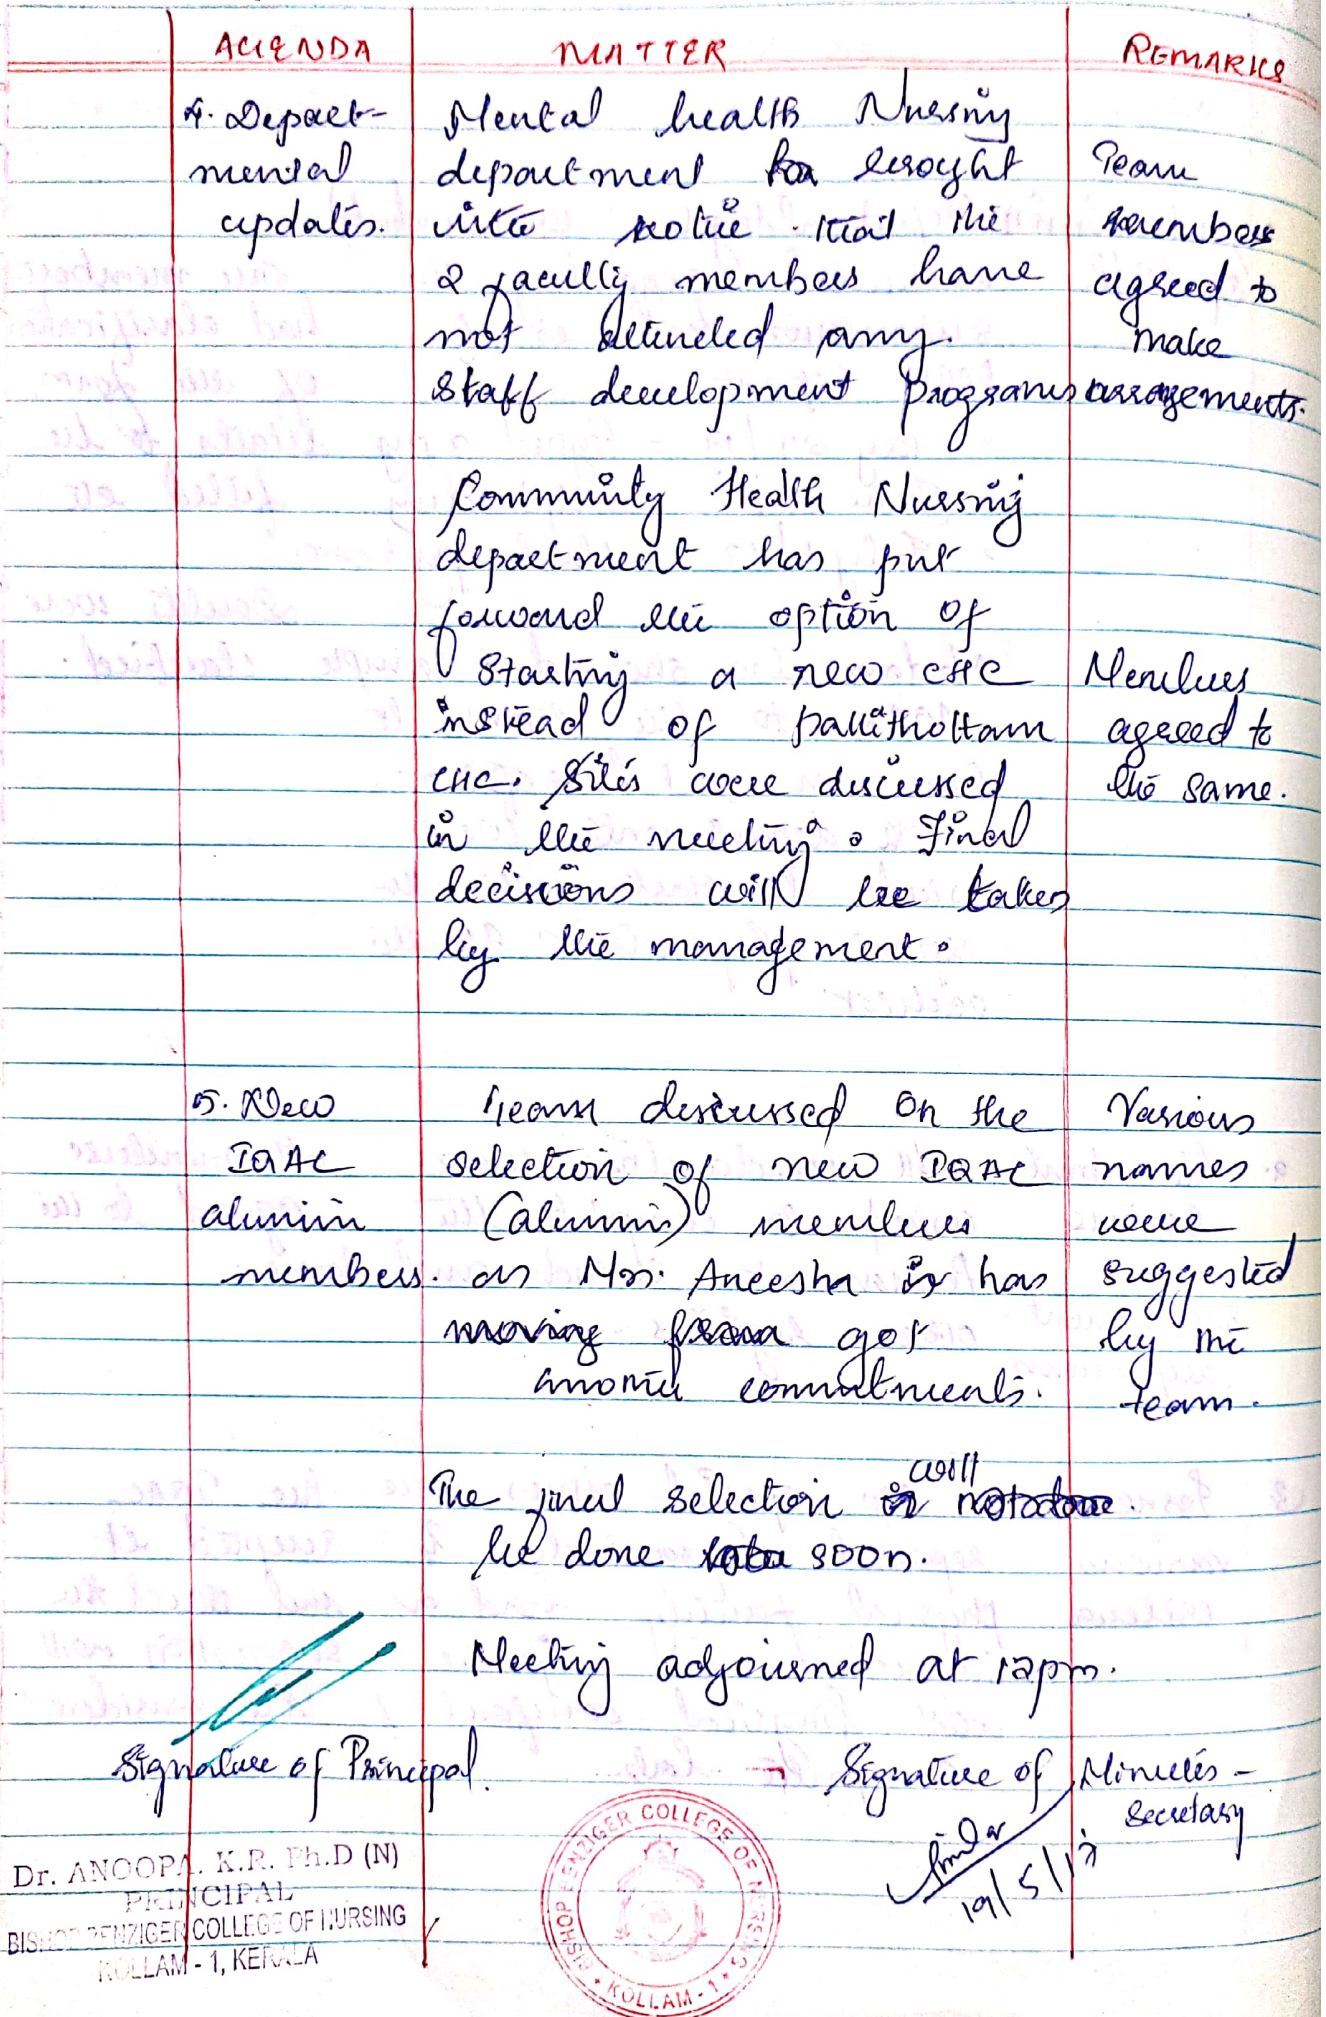 AGENDA MATTER REMARKS
4. Depart-
mental
updates.
Mental health Nursing
department brought
into notice that the
2 faculty members have
not attended any
staff development programs
Team
members
agreed to
make
arrangements.
Community Health Nursing
department has put
forward the option of
starting a new CHC
instead of Pallithottam
CHC. Sites were discussed
in the meeting. Final
decisions will be taken
by the management.
Members
agreed to
the same.
5. New
IQAC
alumini
members.
Team discussed on the
selection of new IQAC
(alumni) members
as Mrs. Aneesha has
got
another commitments.
Various
names
were
suggested
by the
team.
The final selection will
be done soon.
Meeting adjourned at 12pm.
Signature of Principal.
Signature of Minutes -
Secretary
19/5/17
Dr. ANOOPA. K.R. Ph.D (N)
PRINCIPAL
BISHOP BENZIGER COLLEGE OF NURSING
KOLLAM - 1, KERALA
BISHOP BENZIGER COLLEGE OF NURSING
KOLLAM - 1